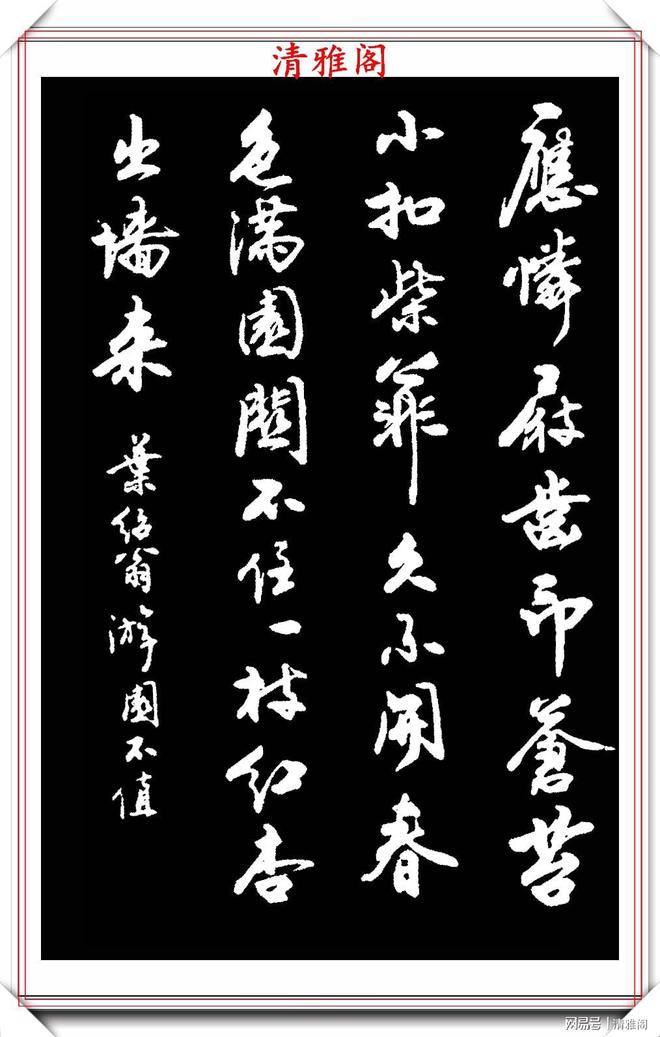 清雅阁
應憐屐齒印蒼苔
小扣柴扉久不開春
色滿園關不住一枝紅杏
出墻来
葉紹翁游園不值
网易号|清雅阁